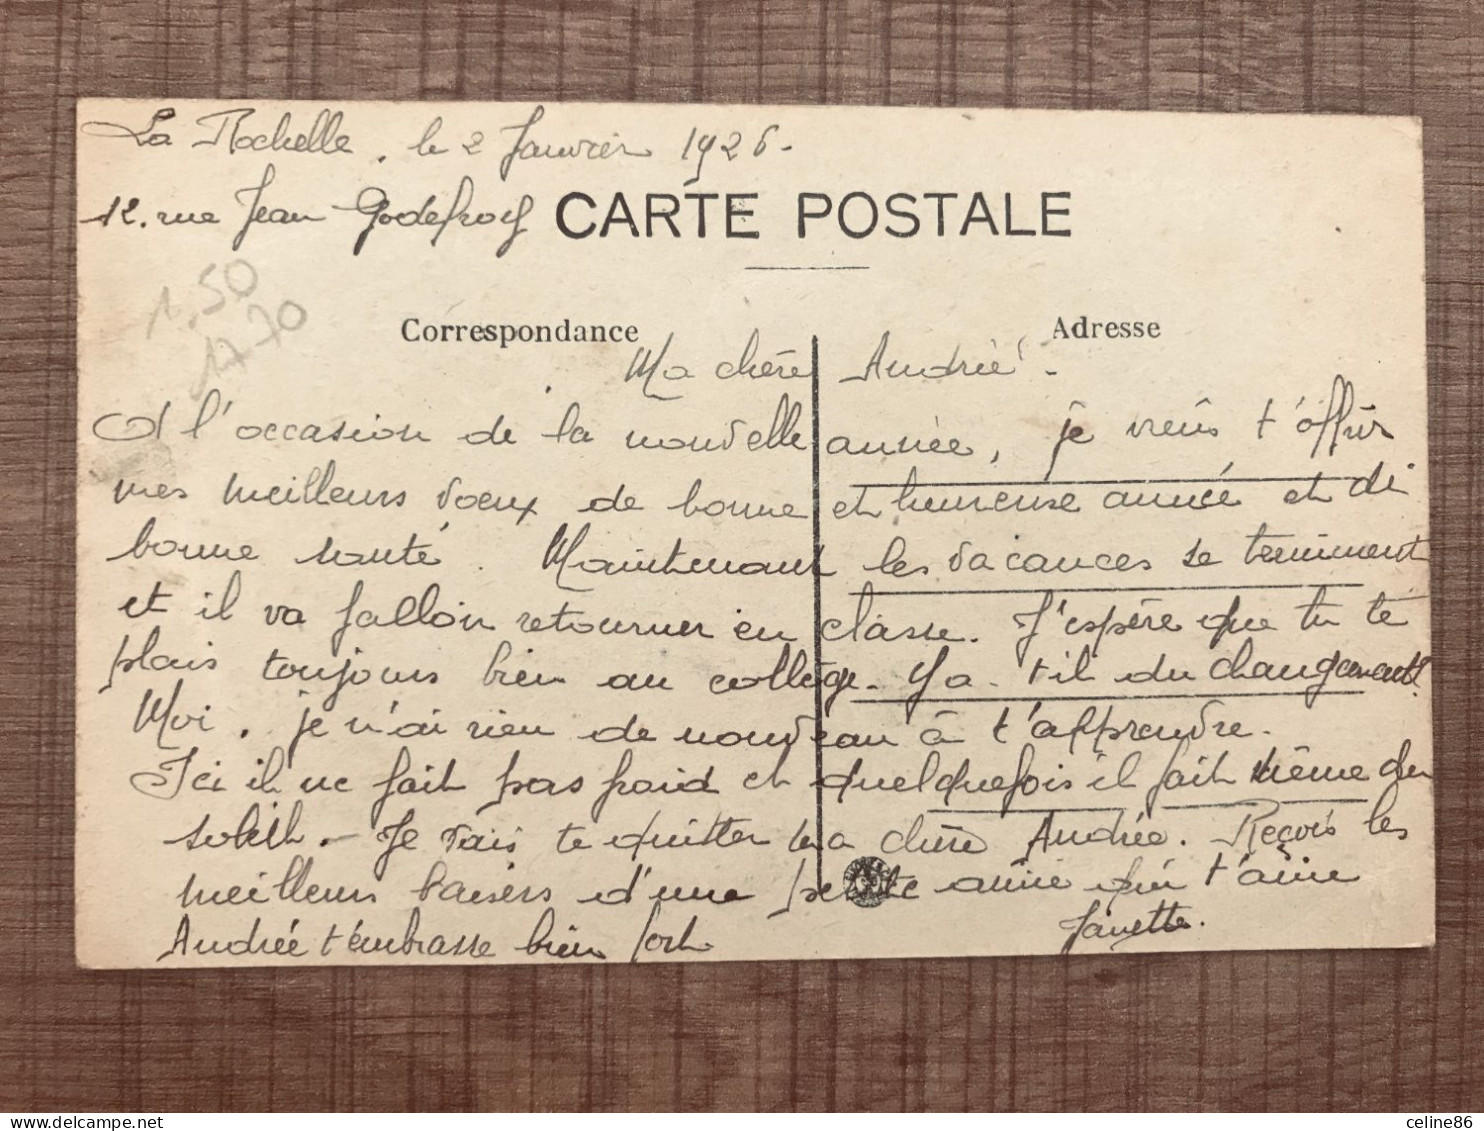 La Rochelle, le 2 Janvier 1926.
12. rue Jean Godefroy
CARTE POSTALE
1,50
17 70
Correspondance
Adresse
Ma chère Andrée.
A l'occasion de la nouvelle année, je viens t'offrir
mes meilleurs voeux de bonne et heureuse année et di
bonne santé. Maintenant les vacances se terminent
et il va falloir retourner en classe. J'espère que tu te
plais toujours bien au collège. Ya-t-il du changement.
Moi, je n'ai rien de nouveau à t'apprendre.
Ici il ne fait pas froid et quelquefois il fait même du
soleil. - Je vais te quitter ma chère Andrée. Reçois les
meilleurs baisers d'une petite amie qui t'aime
Janette.
Andrée t'embrasse bien fort
celine86